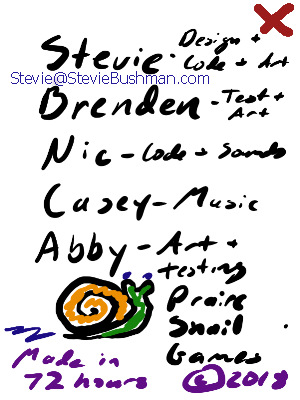 Stevie - Design + Code + Art
Stevie@StevieBushman.com
Brenden - Test + Art
Nic - Code + Sounds
Casey - Music
Abby - Art + testing
Praire Snail Games
Made in 72 hours
©2018